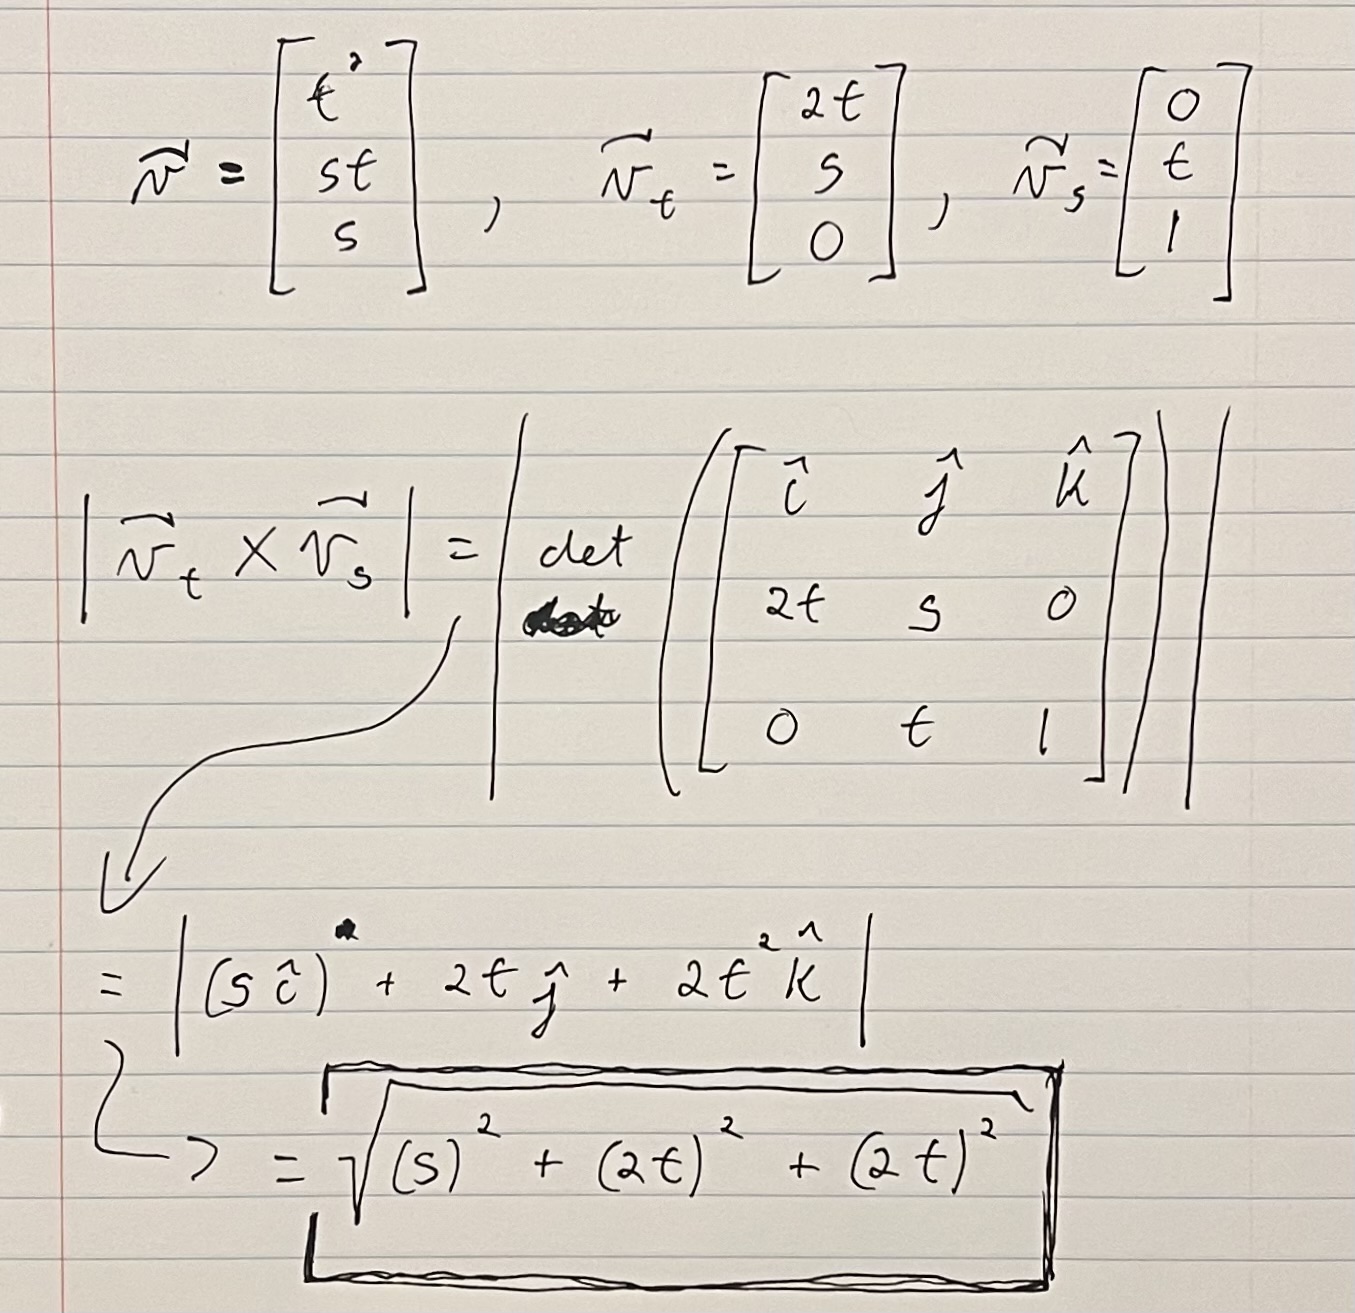 $\vec{v} = \begin{bmatrix} t^2 \\ st \\ s \end{bmatrix}, \quad \vec{v}_t = \begin{bmatrix} 2t \\ s \\ 0 \end{bmatrix}, \quad \vec{v}_s = \begin{bmatrix} 0 \\ t \\ 1 \end{bmatrix}$
$\left| \vec{v}_t \times \vec{v}_s \right| = \left| \det \left( \begin{bmatrix} \hat{i} & \hat{j} & \hat{k} \\ 2t & s & 0 \\ 0 & t & 1 \end{bmatrix} \right) \right|$
$= \left| (s\,\hat{i}) + 2t\,\hat{j} + 2t^2\,\hat{k} \right|$
$= \sqrt{(s)^2 + (2t)^2 + (2t)^2}$